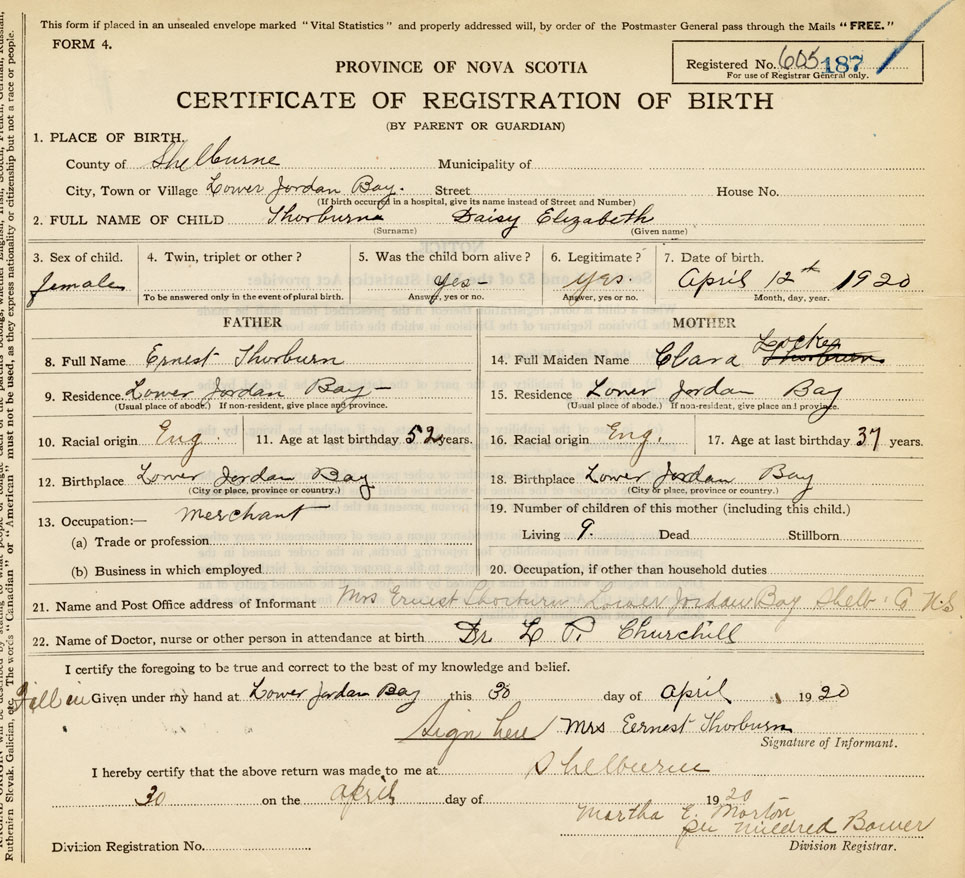 This form if placed in an unsealed envelope marked "Vital Statistics" and properly addressed will, by order of the Postmaster General pass through the Mails "FREE."
FORM 4.
Registered No. 605 187
For use of Registrar General only.
PROVINCE OF NOVA SCOTIA
CERTIFICATE OF REGISTRATION OF BIRTH
(BY PARENT OR GUARDIAN)
1. PLACE OF BIRTH.
County of Shelburne Municipality of
City, Town or Village Lower Jordan Bay. Street House No.
(If birth occurred in a hospital, give its name instead of Street and Number)
2. FULL NAME OF CHILD Thorburn Daisy Elizabeth
(Surname) (Given name)
3. Sex of child. 4. Twin, triplet or other? 5. Was the child born alive? 6. Legitimate? 7. Date of birth.
female yes- yes. April 12th 1920
To be answered only in the event of plural birth. Answer, yes or no. Answer, yes or no. Month, day, year.
FATHER MOTHER
Locke
8. Full Name Ernest Thorburn 14. Full Maiden Name Clara Thorburn
9. Residence. Lower Jordan Bay- 15. Residence Lower Jordan Bay
(Usual place of abode.) If non-resident, give place and province. (Usual place of abode.) If non-resident, give place and province.
10. Racial origin Eng. 11. Age at last birthday 52 years. 16. Racial origin Eng. 17. Age at last birthday 37 years.
12. Birthplace Lower Jordan Bay 18. Birthplace Lower Jordan Bay
(City or place, province or country.) (City or place, province or country.)
13. Occupation:— Merchant 19. Number of children of this mother (including this child.)
(a) Trade or profession Living 9. Dead Stillborn
(b) Business in which employed 20. Occupation, if other than household duties
21. Name and Post Office address of Informant Mrs Ernest Thorburn Lower Jordan Bay Shelb. Co N.S
22. Name of Doctor, nurse or other person in attendance at birth Dr L P. Churchill
I certify the foregoing to be true and correct to the best of my knowledge and belief.
Fill in Given under my hand at Lower Jordan Bay this 30 day of April 1920
Sign here Mrs Eernest Thorburn
Signature of Informant.
I hereby certify that the above return was made to me at Shelburne
30 on the April day of 1920
Martha E. Morton
per Mildred Bower
Division Registration No. Division Registrar.